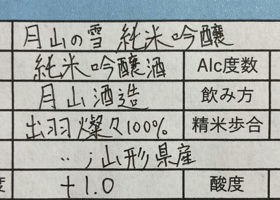 月山の雪 純米吟醸
純米吟醸酒 Alc度数
月山酒造 飲み方
出羽燦々100% 精米歩合
〃 ; 山形県産
度 +1.0 酸度